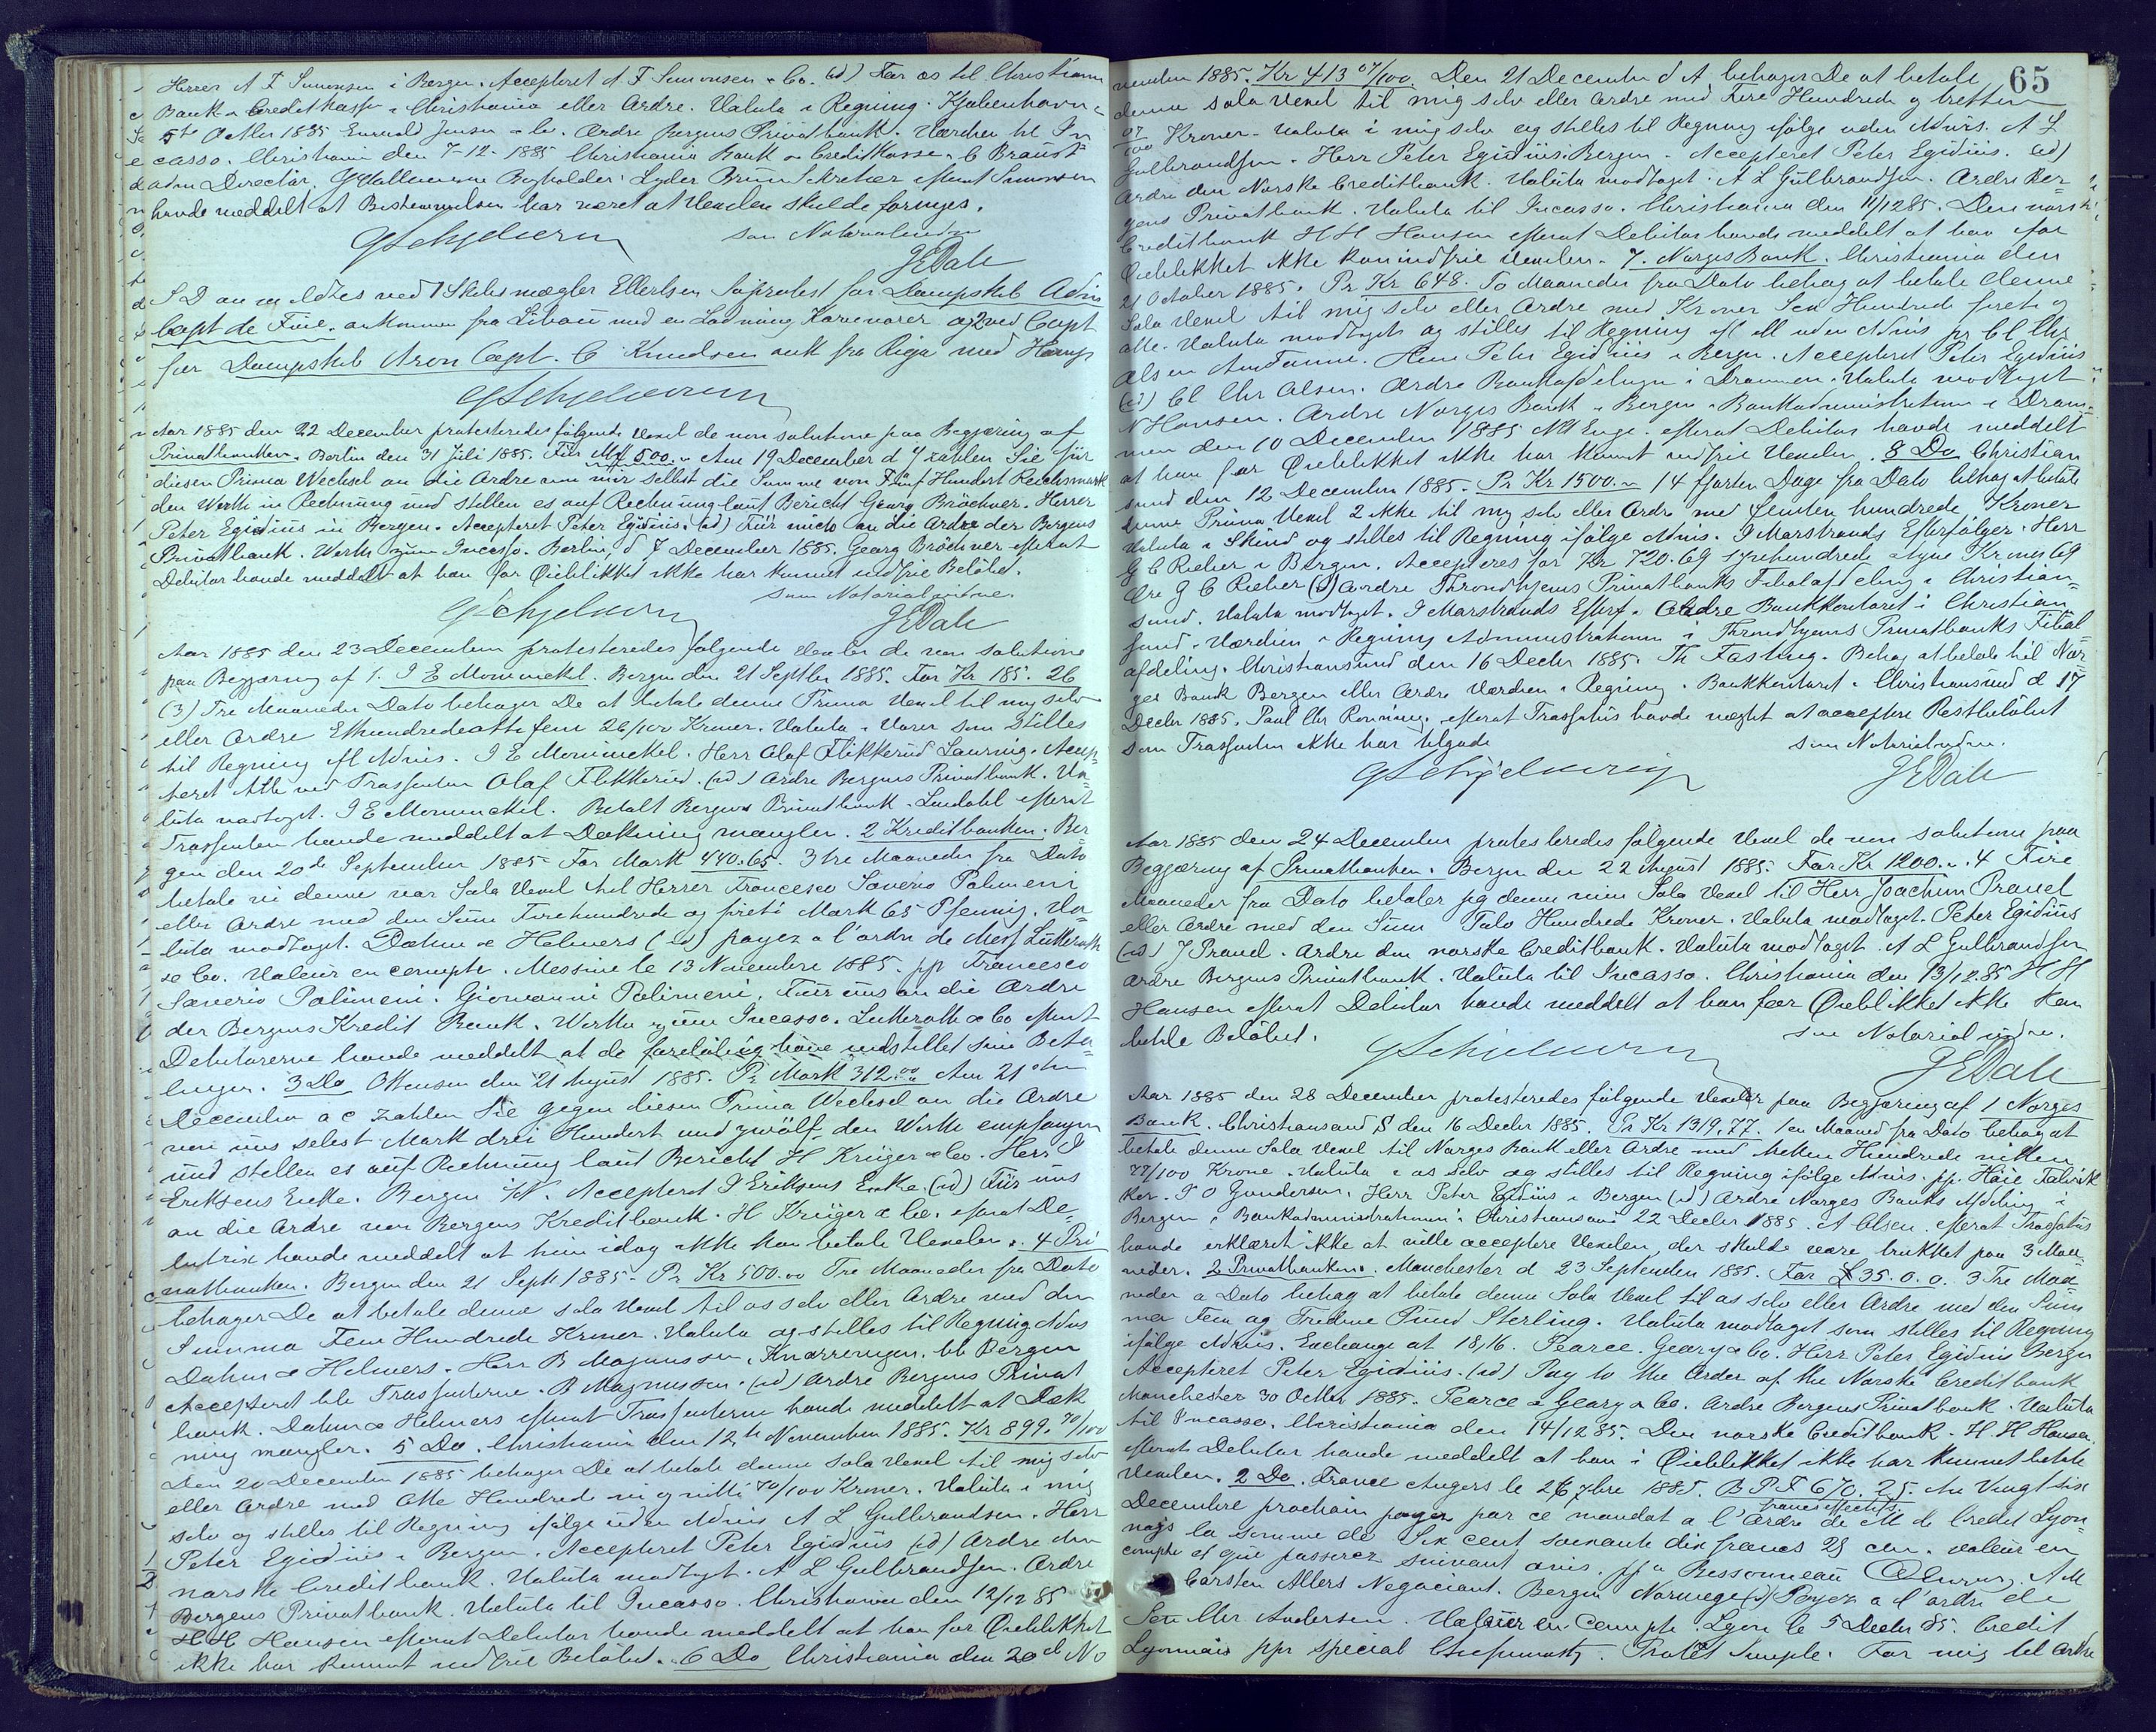 Herrer A F Simonsen i Bergen. Accepteret A F Simonsen & Co. (id) For os til Christiania
Bank & Creditkasse i Christiania eller Ordre. Valuta i Regning. Kjøbenhavn
5te Octbr 1885 Jensen & Co. Ordre Bergens Privatbank. Værdien til In
casso. Christiania den 7-12-1885 Christiania Bank og Creditkasse. C Brandt
adm Directör. Bogholder. Lyder Brun Sekretær efterat Simonsen
havde meddelt at Bestemmelsen har været at Vexelen skulde fornyes.
som Notarialvidne
JEDahl
S D anmeldtes ved 1 Skibsmægler Ellertsen Søprotest for Dampskib
Capt de Fine. ankommen fra Libau med en Ladning Kornvarer og 2 ved Capt
for Dampskib Aron Capt. C Knudsen ank fra Riga med Hamp
Aar 1885 den 22 December protesteredes følgende Vexel de non solutione paa Begjæring af
Privatbanken. Berlin den 31 Juli 1885. Für Mk 500. Am 19 December d J zahlen Sie für
diesen Prima Wechsel an die Ordre von mir selbst die Summe von Fünf Hundert Reichsmark
den Werth in Rechnung und stellen es auf Rechnung laut Bericht Georg Bröchner. Herrn
Peter Egidius in Bergen. Accepteret Peter Egidius. (id) Für mich an die Ordre der Bergens
Privatbank. Werth zum Incasso. Berlin, d 7 December 1885. Georg Bröchner efterat
Debitor havde meddelt at han for Øieblikket ikke har kunnet indfrie Beløbet.
som Notarialvidne.
JEDahl
Aar 1885 den 23 December protesteredes følgende Vexler de non solutione
paa Begjæring af 1. J E Mowinckel. Bergen den 21 Septbr 1885. For Kr 185. 26
(3) Tre Maaneder Dato behager De at betale denne Prima Vexel til mig selv
eller Ordre Ethundredeottifem 26/100 Kroner. Valuta i Varer som stilles
til Regning ifl Advis. J E Mowinckel. Herr Olaf Flikkerud Laurvig. Accep-
teret Olaf Flikkerud. (id) Ordre Bergens Privatbank. Va-
luta modtaget. J E Mowinckel. Betalt Bergens Privatbank. Lindahl efterat
Trassenten havde meddelt at Dækning mangler. 2 Kreditbanken. Ber-
gen den 20de September 1885 For Mark 440.65. 3 tre Maaneder fra Dato
betale vi denne vor Sola Vexel til Herrer Francesco Saverio Polimeni
eller Ordre med den Sum Firehundrede og fireti Mark 65 Pfennig. Va-
luta modtaget. Dahm & Helmers (id) payez a l'ordre de Mess Lutteroth
& Co. Valeur en compte. Messine le 13 Novembre 1885. pp Francesco
Saverio Polimeni. Giovanni Polimeni. Für uns an die Ordre
der Bergens Kredit Bank. Werthe zum Incasso. Lutteroth & Co efterat
Debitorerne havde meddelt at de foreløbig have indstillet sine Beta-
linger. 3 Do Ottensen den 21 August 1885. Pr Mark 312.00 Am 21 ten
December a c zahlen Sie gegen diesen Prima Wechsel an die Ordre
von uns selbst Mark drei Hundert und zwölf den Werth empfangen
und stellen es auf Rechnung laut Bericht H Krüger & Co. Herr J
Eriksens Enke. Bergen i/N. Accepteret J Eriksens Enke. (id) Für uns
an die Ordre von Bergens Kreditbank. H Krüger & Co. efterat De-
bitrix havde meddelt at hun idag ikke kan betale Vexelen. 4 Pri
vatbanken. Bergen den 21 Septb 1885. Pr Kr 500.00 Tre Maaneder fra Dato
behager De at betale denne sola Vexel til os selv eller Ordre med den
Summa Fem Hundrede Kroner. Valuta og stilles til Regning Advis
Dahm & Helmers. Herr B Magnussen, Knarrevigen. Bergen
Accepteret Trassenterne. B Magnussen. (id) Ordre Bergens Privat
bank. Dahm & Helmers efterat Trassenterne havde meddelt at Dæk
ning mangler. 5 Do. Christiania den 12th November 1885. Kr 899. 70/100
Den 20 December 1885 behager De at betale denne sola Vexel til mig selv
eller Ordre med Otte Hundrede ni og nitti 70/100 Kroner. Valuta i mig
selv og stilles til Regning ifølge uden Advis A L Gulbrandsen. Herr
Peter Egidius i Bergen. Accepteret Peter Egidius (id) Ordre den
norske Creditbank. Valuta modtaget. A L Gulbrandsen. Ordre
Bergens Privatbank. Valuta til Incasso. Christiania den 12/12 85
H H Hansen efterat Debitor havde meddelt at han for Øieblikket
ikke har kunnet indfrie Beløbet. 6 Do Christiania den 20de No
65
vember 1885. Kr 413 07/100. Den 21 December d A behager De at betale
denne sola Vexel til mig selv eller Ordre med Fire Hundrede og tretten
07/100 Kroner. Valuta i mig selv og stilles til Regning ifølge uden Advis. A L
Gulbrandsen. Herr Peter Egidius. Bergen. Accepteret Peter Egidius. (id)
Ordre den Norske Creditbank. Valuta modtaget. A L Gulbrandsen. Ordre Ber-
gens Privatbank. Valuta til Incasso. Christiania den 11/12 85. Den norske
Creditbank H H Hansen efterat Debitor havde meddelt at han for
Øieblikket ikke kan indfrie Vexelen. 7. Norges Bank. Christiania den
21 October 1885. Pr Kr 648. To Maaneder fra Dato behag at betale denne
Sola Vexel til mig selv eller Ordre med Kroner Sex Hundrede fireti og
otte. Valuta modtaget og stilles til Regning ifl ell uden Advis pr Cl Chr
Olsen. Herr Peter Egidius i Bergen. Accepteret Peter Egidius
(id) Cl Chr Olsen. Ordre Bankafdelingen i Drammen. Valuta modtaget
N Hansen. Ordre Norges Bank i Bergen. Bankadministrationen i Dram-
men den 10 December 1885 Enge. efterat Debitor havde meddelt
at han for Øieblikket ikke har kunnet indfrie Vexelen. 8 Do. Christian
sund den 12 December 1885. Pr Kr 1500. 14 fjorten Dage fra Dato behag at betale
denne Prima Vexel 2 ikke til mig selv eller Ordre med femten hundrede Kroner
Valuta i Skind og stilles til Regning ifølge Advis. J Marstrands Efterfølger. Herr
G C Rieber i Bergen. Accepteres for Kr 720.69 syvhundrede Kroner 69
Øre G C Rieber (id) Ordre Throndhjems Privatbanks Filialafdeling i Christian-
sund. Valuta modtaget. J Marstrands Efterf. Ordre Bankkontoret i Christian
sund. Værdien i Regning Administrationen i Throndhjems Privatbanks Filial-
afdeling. Christiansund den 16 Decbr 1885. Th Fasting. Behag at betale til Nor-
ges Bank Bergen eller Ordre Værdien i Regning. Bankkontoret i Christiansund d 17
Decbr 1885. Paul Chr Rønning. efterat Trassatus havde nægtet at acceptere Restbeløbet
som Trassenten ikke har tilgode
som Notarialvidne.
JEDahl
Aar 1885 den 24 December protesteredes følgende Vexel de non solutione paa
Begjæring af Privatbanken. Bergen den 22 August 1885. For Kr 1200. 4 Fire
Maaneder fra Dato betaler jeg denne min Sola Vexel til Herr Joachim Pravel
eller Ordre med den Sum Tolv Hundrede Kroner. Valuta modtaget. Peter Egidius
(id) J Pravel. Ordre den norske Creditbank. Valuta modtaget. A L Gulbrandsen
Ordre Bergens Privatbank. Valuta til Incasso. Christiania den 13/12.85 H H
Hansen efterat Debitor havde meddelt at han for Øieblikket ikke kan
betale Beløbet.
som Notarialvidne.
JEDahl
Aar 1885 den 28 December protesteredes følgende Vexler paa Begjæring af 1 Norges
Bank. Christiansand S den 16 Decbr 1885. Er Kr 1319,77. 1 en Maaned fra Dato behag at
betale denne Sola Vexel til Norges Bank eller Ordre med tretten Hundrede nitten
77/100 Krone. Valuta i os selv og stilles til Regning ifølge Advis. pp. Høie Fabrik
ker. T O Gundersen. Herr Peter Egidius i Bergen (id) Ordre Norges Banks Afdeling i
Bergen. Bankadministrationen i Christiansand 22 Decbr 1885. A Olsen. efterat Trassatus
havde erklæret ikke at ville acceptere Vexelen, der skulde være trukket paa 3 Maa
neder. 2 Privatbanken. Manchester d 23 September 1885. For £ 35. 0. 0. 3 Tre Maa
neder a Dato behag at betale denne Sola Vexel til os selv eller Ordre med den Sum
ma Fem og Tredive Pund Sterling. Valuta modtaget som stilles til Regning
ifølge Advis. Exchange at 18,16. Pearce. Geary & Co. Herr Peter Egidius Bergen
Accepteret Peter Egidius. (id) Pay to the Order of the Norske Creditbank
Manchester 30 Octbr 1885. Pearce & Geary & Co. Ordre Bergens Privatbank. Valuta
til Incasso. Christiania den 14/12 85. Den norske Creditbank. H. H Hansen.
efterat Debitor havde meddelt at han i Øieblikket ikke har kunnet betale
Vexelen. 2 Do. France Angers le 26 7bre 1885. B P F 670. 25. Au Vingt six
Decembre prochain payez par ce mandat a l'Ordre de M de Credit Lyon-
nais la somme de francs effectifs Six cent soixante dix francs 25 cen. valeur en
compte et que passerez suivant avis. pp Bessonneau A M
Carsten Allers Negociant. Bergen Norwege (id) Payez a l'ordre de
Chr Andersen. Valeur en Compte. Lyon le 5 Decbr 85. Credit
Lyonnais ppr special. Protêt Simple. For mig til Ordre